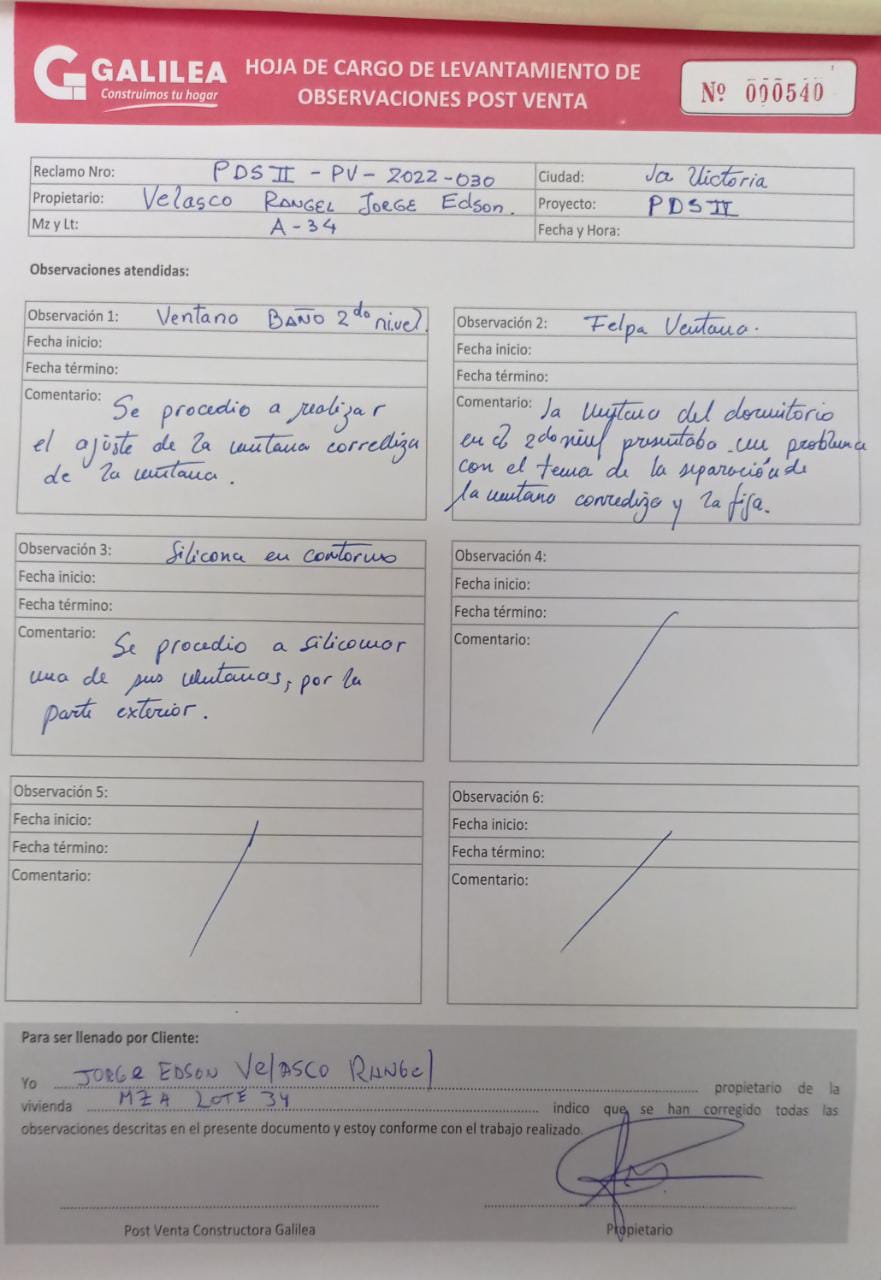 GALILEA
Construimos tu hogar
HOJA DE CARGO DE LEVANTAMIENTO DE
OBSERVACIONES POST VENTA
Nº 000540
Reclamo Nro: PDS II - PV - 2022 - 030
Ciudad: La Victoria
Propietario: Velasco RANGEL JORGE Edson.
Proyecto: PDS II
Mz y Lt: A - 34
Fecha y Hora:
Observaciones atendidas:
Observación 1: Ventano BAÑO 2do nivel.
Fecha inicio:
Fecha término:
Comentario: Se procedio a realizar
el ajuste de la ventana corrediza
de la ventana.
Observación 2: Felpa Ventana.
Fecha inicio:
Fecha término:
Comentario: La Ventana del dormitorio
en el 2do nivel presentaba un problema
con el tema de la separación de
la ventano corredizo y la fija.
Observación 3: Silicona en contorno
Fecha inicio:
Fecha término:
Comentario: Se procedio a siliconar
una de sus ventanas, por la
parte exterior.
Observación 4:
Fecha inicio:
Fecha término:
Comentario:
Observación 5:
Fecha inicio:
Fecha término:
Comentario:
Observación 6:
Fecha inicio:
Fecha término:
Comentario:
Para ser llenado por Cliente:
Yo JORGE EDSON VELASCO RANGEL propietario de la
vivienda MZ A LOTE 34 indico que se han corregido todas las
observaciones descritas en el presente documento y estoy conforme con el trabajo realizado.
Post Venta Constructora Galilea
Propietario